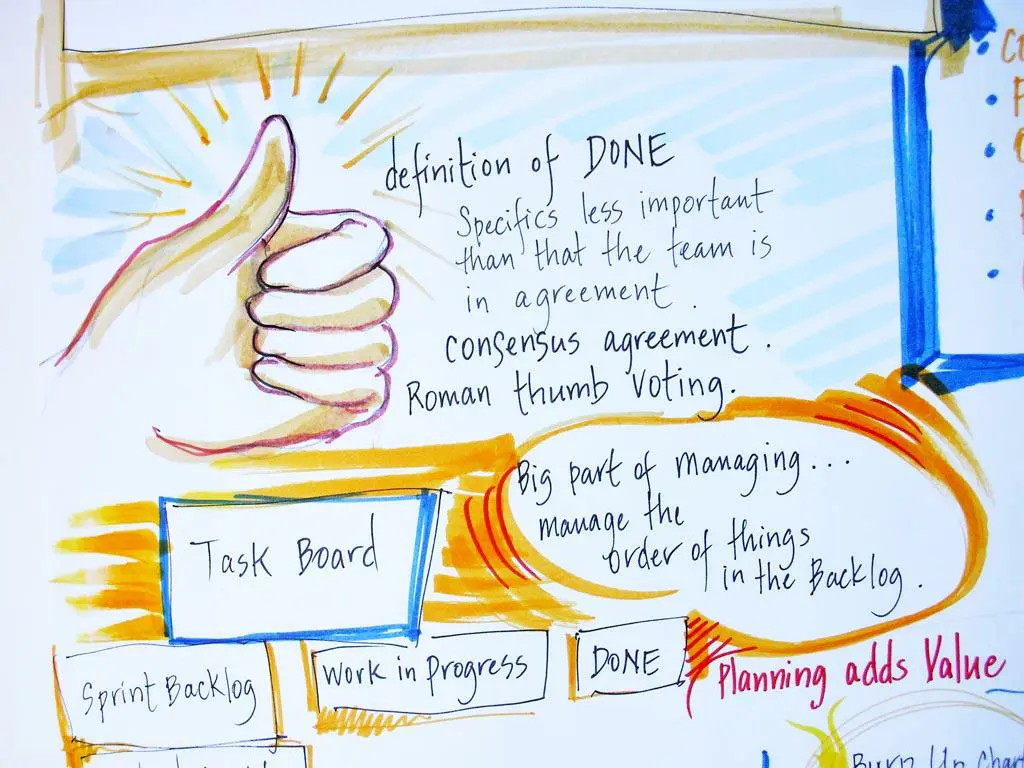 definition of DONE
Specifics less important
than that the team is
in agreement.
consensus agreement.
Roman thumb voting.
Big part of managing...
manage the
order of things
in the Backlog.
Task Board
Sprint Backlog
Work in Progress
DONE
Planning adds Value
Burn Up Chart